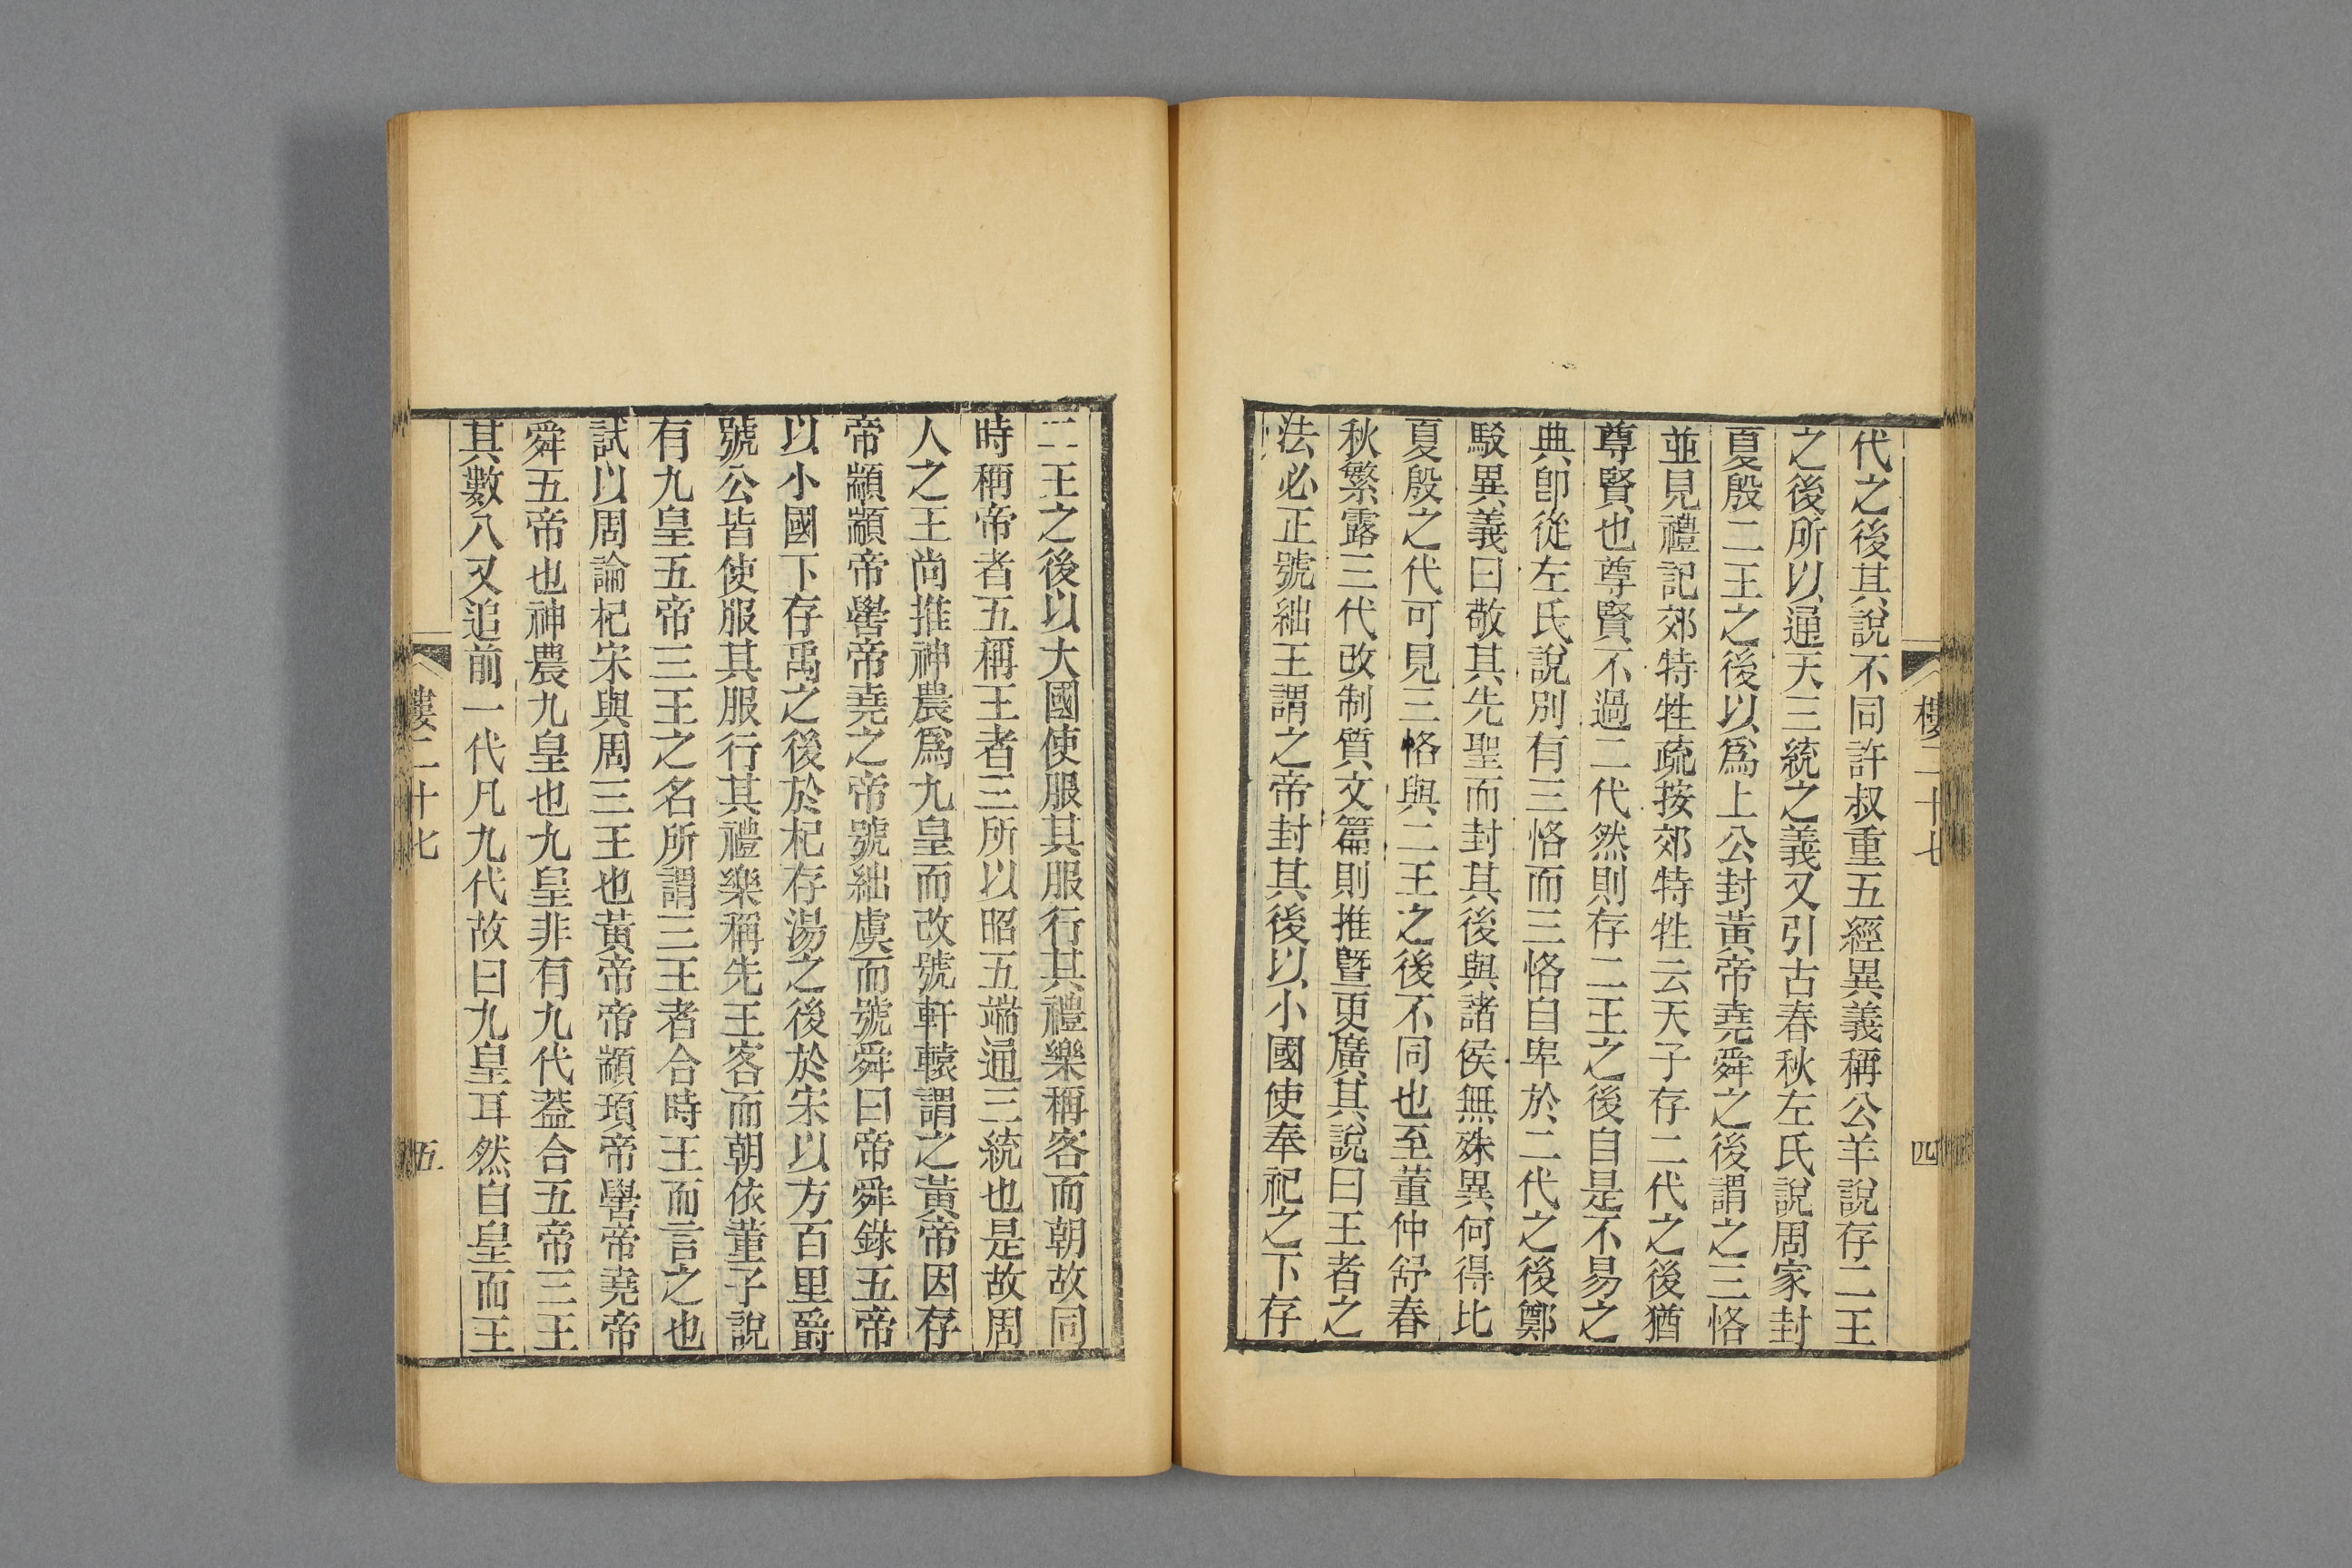 代之後其說不同許叔重五經異義稱公羊說存二王
之後所以通天三統之義又引古春秋左氏說周家封
夏殷二王之後以爲上公封黃帝堯舜之後謂之三恪
並見禮記郊特牲疏按郊特牲云天子存二代之後猶
尊賢也尊賢不過二代然則存二王之後自是不易之
典卽從左氏說別有三恪而三恪自卑於二代之後鄭
駁異義曰敬其先聖而封其後與諸侯無殊異何得比
夏殷之代可見三恪與二王之後不同也至董仲舒春
秋繁露三代改制質文篇則推暨更廣其說曰王者之
法必正號絀王謂之帝封其後以小國使奉祀之下存
樓二十七
四
二王之後以大國使服其服行其禮樂稱客而朝故同
時稱帝者五稱王者三所以昭五端通三統也是故周
人之王尚推神農爲九皇而改號軒轅謂之黃帝因存
帝顓頊帝嚳帝堯之帝號絀虞而號舜曰帝舜錄五帝
以小國下存禹之後於杞存湯之後於宋以方百里爵
號公皆使服其服行其禮樂稱先王客而朝依董子說
有九皇五帝三王之名所謂三王者合時王而言之也
試以周論杞宋與周三王也黃帝帝顓頊帝嚳帝堯帝
舜五帝也神農九皇也九皇非有九代葢合五帝三王
其數八又追前一代凡九代故曰九皇耳然自皇而王
樓二十七
五